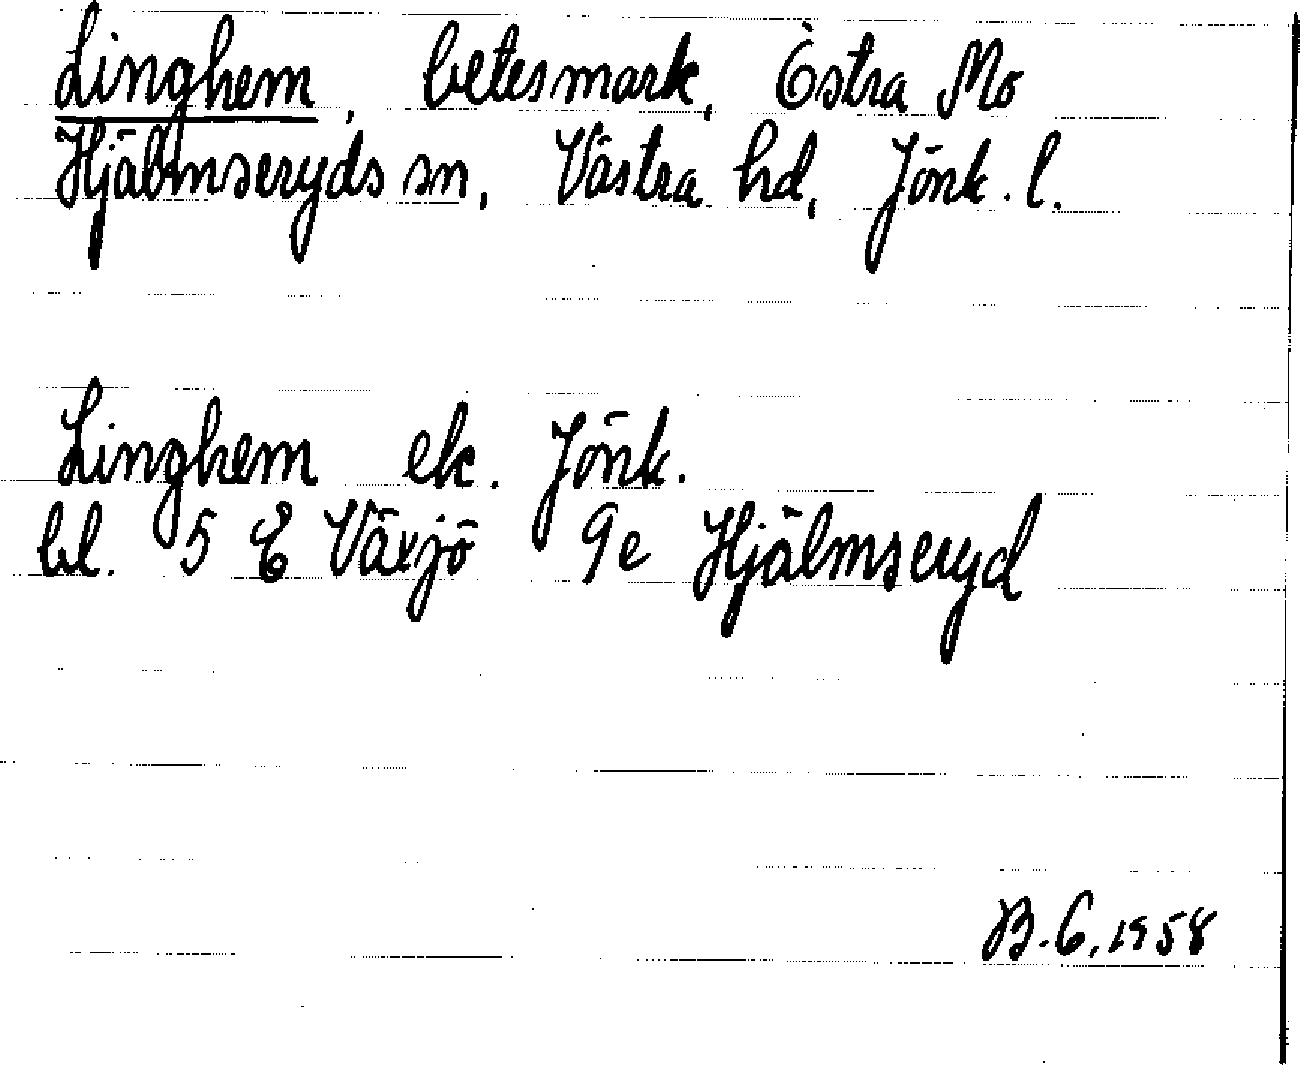 Linghem, betesmark, Östra Mo
Hjälmseryds sn, Västra hd, Jönk. l.
Linghem ek. Jönk.
bl. 5 E Växjö 9e Hjälmseryd
B.G. 1958